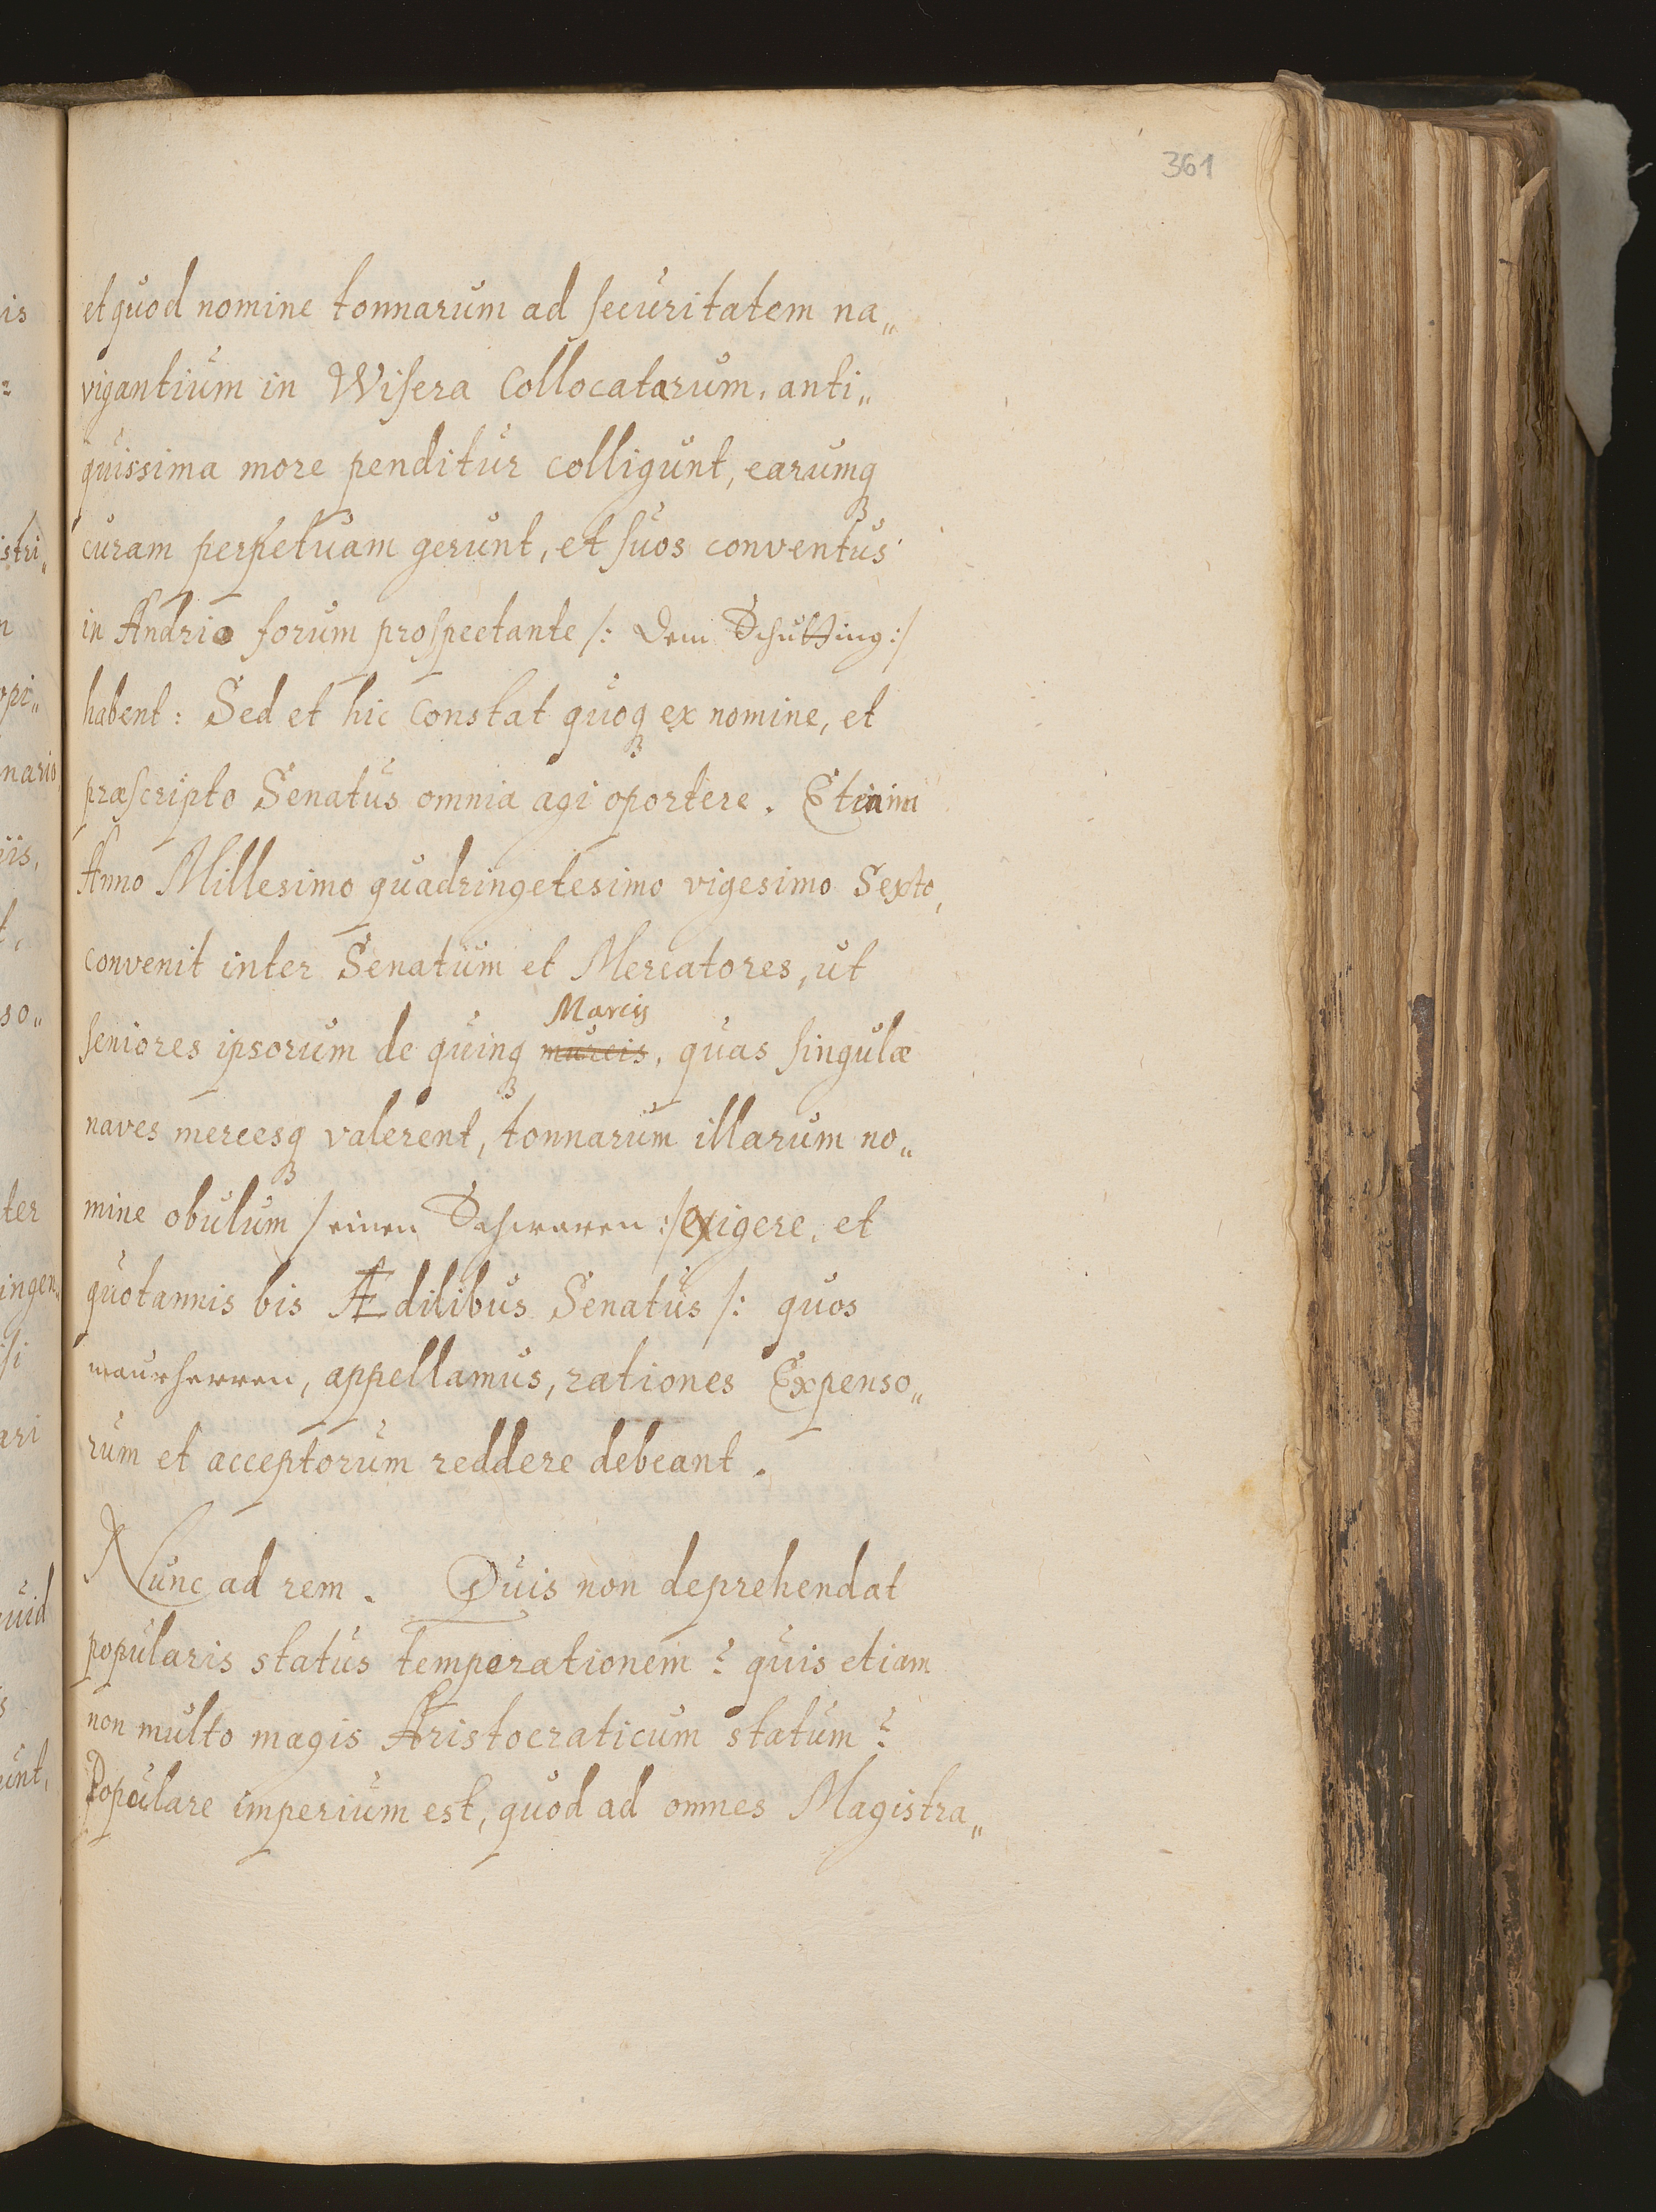 361
et quod nomine tonnarum ad securitatem na„
vigantium in Wisera Collocatarum, anti„
quissima more penditur colligunt, earumq3
curam perpetuam gerunt, et suos conventus
in Andrio forum prospectante /: dem Schutting :/
habent: Sed et hic constat quoq3 ex nomine, et
præscripto Senatus omnia agi oportere. Etenim
Anno Millesimo quadringetesimo vigesimo Sexto,
convenit inter Senatum et Mercatores, ut
Marcis
seniores ipsorum de quinq3 murcis, quas singulæ
naves mercesq3 valerent, tonnarum illarum no„
mine obulum / einen Schwaren :/ exigere, et
quotannis bis Ædilibus Senatus /: quos
maurherren, appellamus, rationes Expenso„
rum et acceptorum reddere debeant.
Nunc ad rem. Quis non deprehendat
popularis status temperationem? quis etiam
non multo magis Aristocraticum statum?
Populare imperium est, quod ad omnes Magistra„